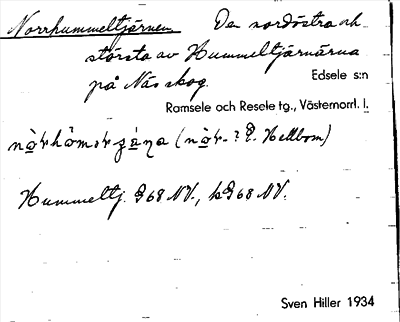 Norrhummeltjärnen Den nordöstra och
största av Hummeltjärnarna
på Näs skog.
Edsele s:n
Ramsele och Resele tg., Västernorrl. l.
(nòr-? E. Hellbom)
Hummeltj. G 68 NV., G 68 NV.
Sven Hiller 1934